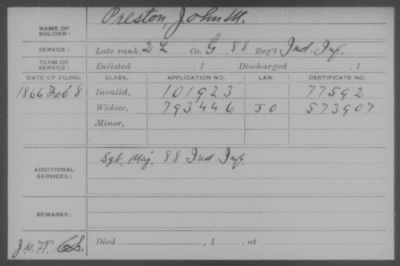 NAME OF SOLDIER: Preston, John M.
SERVICE: Late rank, 2 L Co. G, 88 Reg't Ind. Inf.
TERM OF SERVICE: Enlisted , 1 Discharged , 1
DATE OF FILING. CLASS. APPLICATION NO. LAW. CERTIFICATE NO.
1866 Feb 8 Invalid, 101923 77592
Widow, 793446 J O 573907
Minor,
ADDITIONAL SERVICES: Sgt. Maj. 88 Ind Inf
REMARKS:
Died , 1 , at